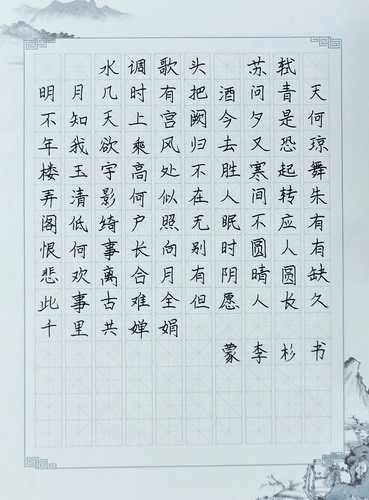 水调歌头 苏轼
明月几时有把酒问青天
不知天上宫阙今夕是何
年我欲乘风归去又恐琼
楼玉宇高处不胜寒起舞
弄清影何似在人间转朱
阁低绮户照无眠不应有
恨何事长向别时圆人有
悲欢离合月有阴晴圆缺
此事古难全但愿人长久
千里共婵娟
蒙李杉书